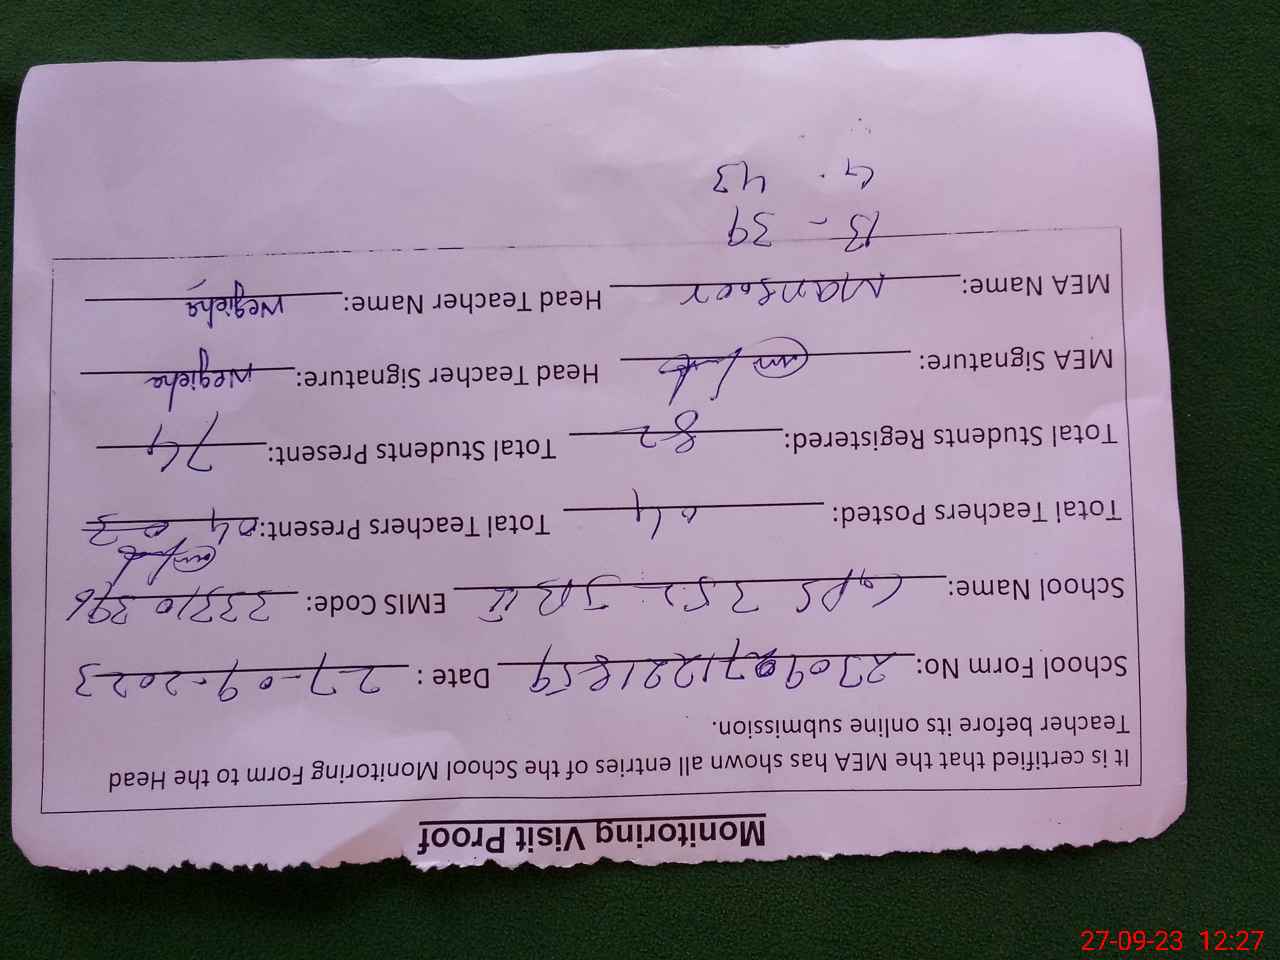 Monitoring Visit Proof
It is certified that the MEA has shown all entries of the School Monitoring Form to the Head
Teacher before its online submission.
School Form No: Date : 27-09-2023
School Name: GPS 352 JB II EMIS Code: 33310396
Total Teachers Posted: 04 Total Teachers Present: 04 03
Total Students Registered: 82 Total Students Present: 74
MEA Signature: Head Teacher Signature: Negieha
MEA Name: Mansoor Head Teacher Name: Negieha
B - 39
G . 43
27-09-23 12:27